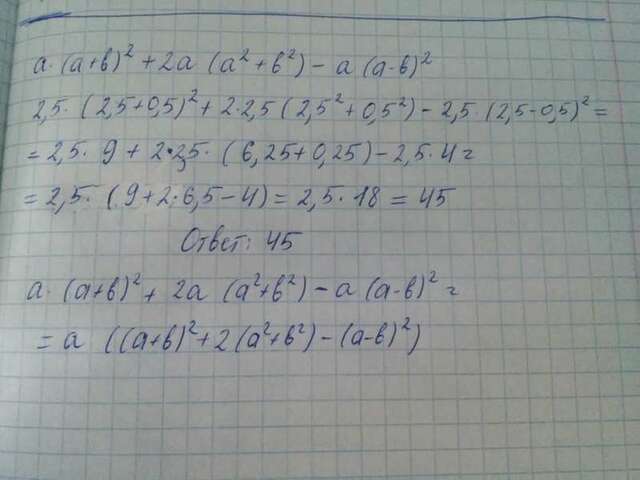 a·(a+b)² + 2a (a²+b²) – a (a-b)²
2,5·(2,5+0,5)² + 2·2,5(2,5²+0,5²) – 2,5·(2,5-0,5)² =
= 2,5·9 + 2·2,5·(6,25+0,25) – 2,5·4 =
= 2,5·(9+2·6,5–4) = 2,5·18 = 45
Ответ: 45
a·(a+b)² + 2a (a²+b²) – a (a-b)² =
= a ((a+b)² + 2(a²+b²) – (a-b)²)